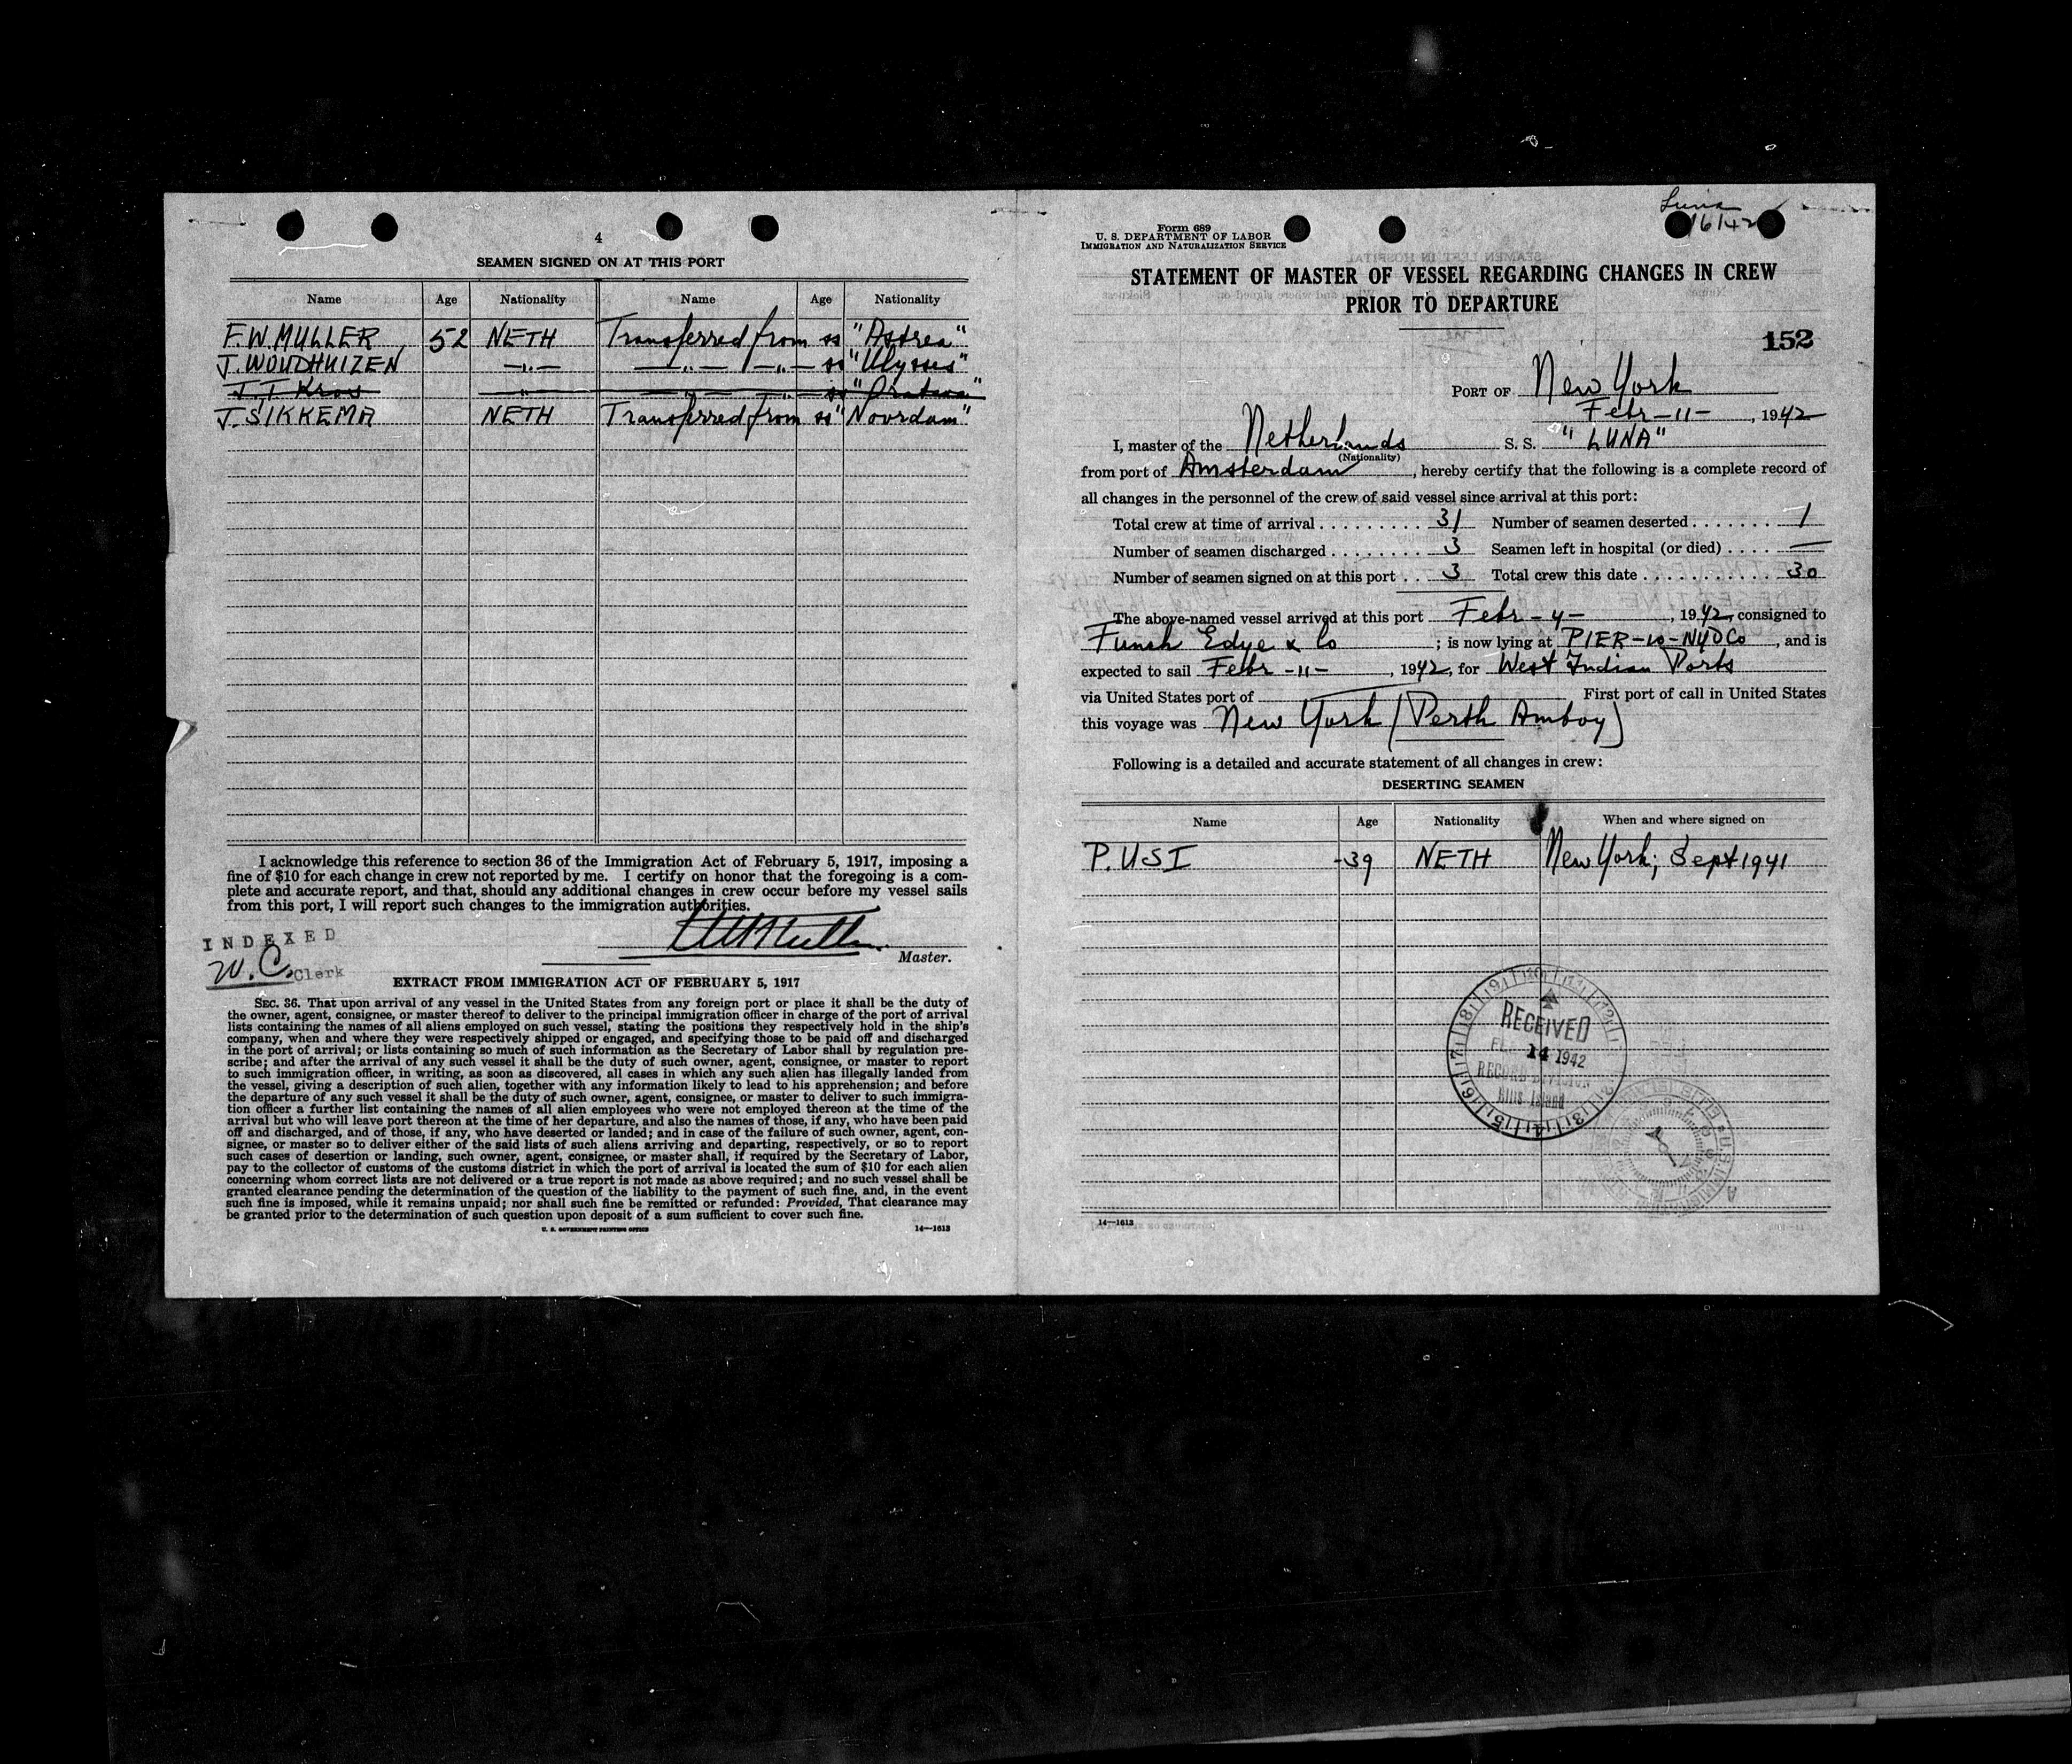 4
SEAMEN SIGNED ON AT THIS PORT
Name Age Nationality Name Age Nationality
F.W. MULLER 52 NETH Transferred from ss "Astrea"
J. WOUDHUIZEN —„— —„— —„— ss "Ulysses"
J. T. Kros „ ss
J. SIKKEMA NETH Transferred from ss "Noordam"
I acknowledge this reference to section 36 of the Immigration Act of February 5, 1917, imposing a
fine of $10 for each change in crew not reported by me. I certify on honor that the foregoing is a com-
plete and accurate report, and that, should any additional changes in crew occur before my vessel sails
from this port, I will report such changes to the immigration authorities.
INDEXED
W.C. Clerk
Master.
EXTRACT FROM IMMIGRATION ACT OF FEBRUARY 5, 1917
SEC. 36. That upon arrival of any vessel in the United States from any foreign port or place it shall be the duty of
the owner, agent, consignee, or master thereof to deliver to the principal immigration officer in charge of the port of arrival
lists containing the names of all aliens employed on such vessel, stating the positions they respectively hold in the ship's
company, when and where they were respectively shipped or engaged, and specifying those to be paid off and discharged
in the port of arrival; or lists containing so much of such information as the Secretary of Labor shall by regulation pre-
scribe; and after the arrival of any such vessel it shall be the duty of such owner, agent, consignee, or master to report
to such immigration officer, in writing, as soon as discovered, all cases in which any such alien has illegally landed from
the vessel, giving a description of such alien, together with any information likely to lead to his apprehension; and before
the departure of any such vessel it shall be the duty of such owner, agent, consignee, or master to deliver to such immigra-
tion officer a further list containing the names of all alien employees who were not employed thereon at the time of the
arrival but who will leave port thereon at the time of her departure, and also the names of those, if any, who have been paid
off and discharged, and of those, if any, who have deserted or landed; and in case of the failure of such owner, agent, con-
signee, or master so to deliver either of the said lists of such aliens arriving and departing, respectively, or so to report
such cases of desertion or landing, such owner, agent, consignee, or master shall, if required by the Secretary of Labor,
pay to the collector of customs of the customs district in which the port of arrival is located the sum of $10 for each alien
concerning whom correct lists are not delivered or a true report is not made as above required; and no such vessel shall be
granted clearance pending the determination of the question of the liability to the payment of such fine, and, in the event
such fine is imposed, while it remains unpaid; nor shall such fine be remitted or refunded: Provided, That clearance may
be granted prior to the determination of such question upon deposit of a sum sufficient to cover such fine.
U. S. GOVERNMENT PRINTING OFFICE 14—1613
Luna
Form 689
U. S. DEPARTMENT OF LABOR
IMMIGRATION AND NATURALIZATION SERVICE
STATEMENT OF MASTER OF VESSEL REGARDING CHANGES IN CREW
PRIOR TO DEPARTURE
152
PORT OF New York
Febr-11-, 1942
I, master of the Netherlands S. S. "LUNA"
(Nationality)
from port of Amsterdam, hereby certify that the following is a complete record of
all changes in the personnel of the crew of said vessel since arrival at this port:
Total crew at time of arrival . . . . . . . . . 31 Number of seamen deserted . . . . . . . 1
Number of seamen discharged . . . . . . . . 3 Seamen left in hospital (or died) . . . . —
Number of seamen signed on at this port . . 3 Total crew this date . . . . . . . . . . . 30
The above-named vessel arrived at this port Febr-4-, 1942, consigned to
Funch Edye & Co ; is now lying at PIER-10-NYDCo, and is
expected to sail Febr-11-, 1942, for West Indian Ports
via United States port of First port of call in United States
this voyage was New York (Perth Amboy)
Following is a detailed and accurate statement of all changes in crew:
DESERTING SEAMEN
Name Age Nationality When and where signed on
P. USI -39 NETH New York; Sept 1941
RECEIVED
14 1942
RECORD DIVISION
Ellis Island
14—1613